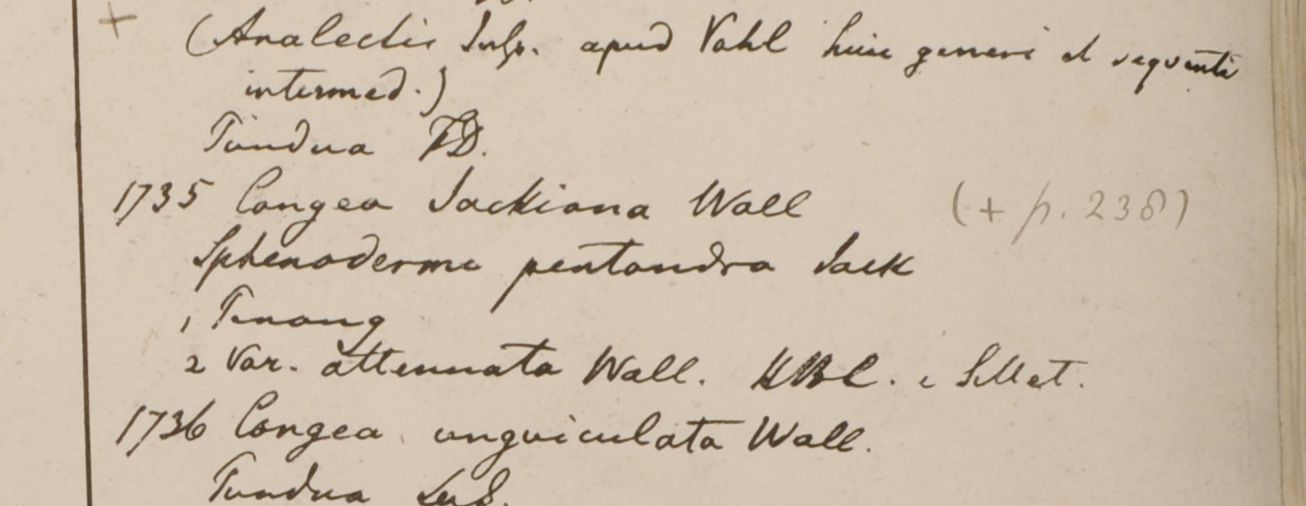 +
(Analectis Insp. apud Vahl huic generi et sequenti
intermed.)
Tundua
1735 Congea Jackiana Wall (+ p. 238)
Sphenodesme pentandra Jack
1 Penang
2 Var. attenuata Wall. HBC. e Sillet.
1736 Congea unguiculata Wall.
Tundua